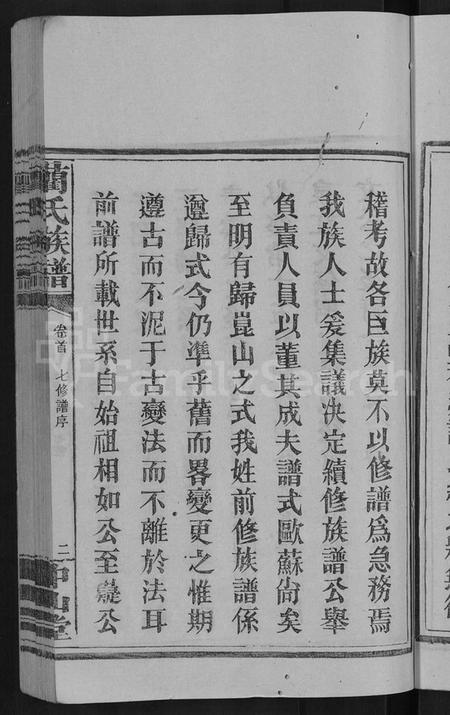 稽考故各巨族莫不以修譜爲急務焉
我族人士爰集議決定續修族譜公舉
負責人員以董其成夫譜式歐蘇尙矣
至明有歸崑山之式我姓前修族譜係
遵歸式今仍準乎舊而畧變更之惟期
遵古而不泥于古變法而不離於法耳
前譜所載世系自始祖相如公至嶷公
藺氏族譜
卷首
七修譜序
二
中山堂
FamilySearch